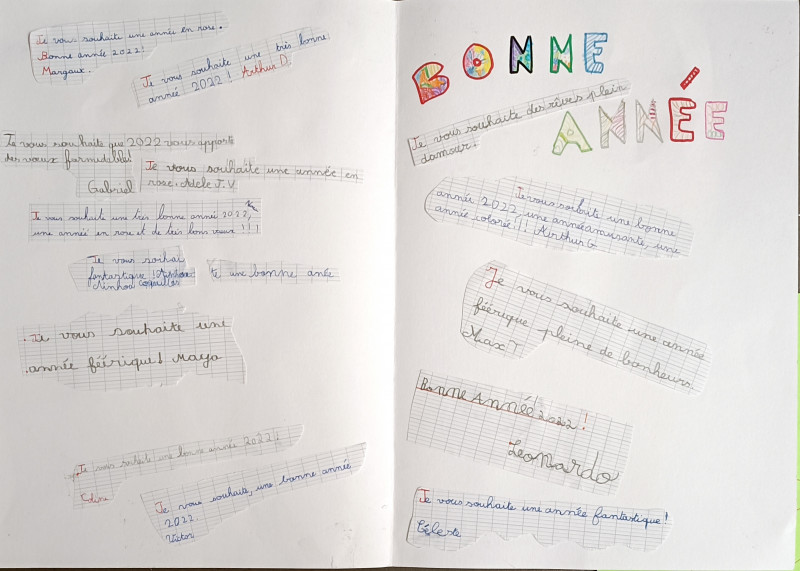 Je vous souhaite une année en rose.
Bonne année 2022!
Margaux.
Je vous souhaite une très bonne
année 2022! Arthur D.
Je vous souhaite que 2022 vous apporte
des voeux formidables!
Gabriel
Je vous souhaite une année en
rose. Adèle J.V
Je vous souhaite une très bonne année 2022,
une année en rose et de très bons voeux !!!
Je vous souhai
fantastique !
te une bonne anée
Je vous souhaite une
année féérique! Maya
Je vous souhaite une bonne année 2022!
Je vous souhaite, une bonne année
2022.
Victor
BONNE
ANNÉE
Je vous souhaite des rêves plein
d'amour.
Je vous souhaite une bonne
année 2022, une année amusante, une
année colorée!! Airthur G
Je vous souhaite une année
féérique pleine de bonheurs.
Max T
Bonne Année 2022 !
Leonardo
Je vous souhaite une année fantastique!
Céleste